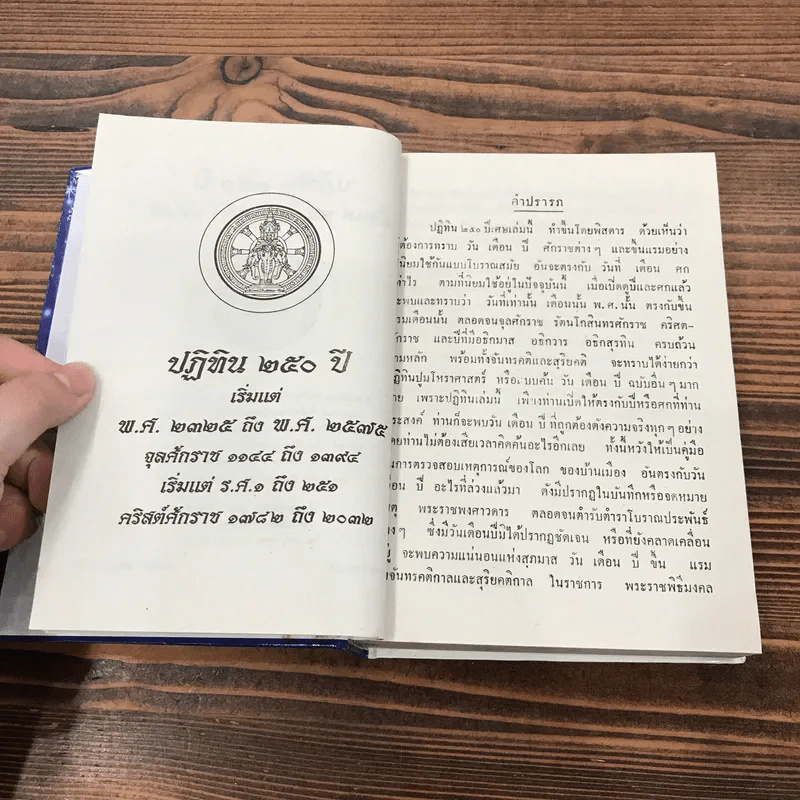 ปฏิทิน ๒๕๐ ปี
เริ่มแต่
พ.ศ. ๒๓๒๕ ถึง พ.ศ. ๒๕๗๕
จุลศักราช ๑๑๔๔ ถึง ๑๓๙๔
เริ่มแต่ ร.ศ.๑ ถึง ๒๕๑
คริสต์ศักราช ๑๗๘๒ ถึง ๒๐๓๒
คำปรารภ
ปฏิทิน ๒๕๐ ปีเศษเล่มนี้ ทำขึ้นโดยพิสดาร ด้วยเห็นว่า
ต้องการทราบ วัน เดือน ปี ศักราชต่าง ๆ และขึ้นแรมอย่าง
นิยมใช้กันแบบโบราณสมัย อันจะตรงกับ วันที่ เดือน ศก
ทำไร ตามที่นิยมใช้อยู่ในปัจจุบันนี้ เมื่อเปิดดูปีและศกแล้ว
จะพบและทราบว่า วันที่เท่านั้น เดือนนั้น พ.ศ.นั้น ตรงกับขึ้น
รมเดือนนั้น ตลอดจนจุลศักราช รัตนโกสินทรศักราช คริศต-
ศักราช และปีที่มีอธิกมาส อธิกวาร อธิกสุรทิน ครบถ้วน
ามหลัก พร้อมทั้งจันทรคติและสุริยคติ จะทราบได้ง่ายกว่า
ฏิทินปูมโหราศาสตร์ หรือแบบค้น วัน เดือน ปี ฉบับอื่น ๆ มาก
าย เพราะปฏิทินเล่มนี้ เพียงท่านเปิดให้ตรงกับปีหรือศกที่ท่าน
ระสงค์ ท่านก็จะพบวัน เดือน ปี ที่ถูกต้องดังความจริงทุก ๆ อย่าง
ดยท่านไม่ต้องเสียเวลาคิดค้นอะไรอีกเลย ทั้งนี้หวังให้เป็นคู่มือ
นการตรวจสอบเหตุการณ์ของโลก ของบ้านเมือง อันตรงกับวัน
ดือน ปี อะไรที่ล่วงแล้วมา ดังมีปรากฏในบันทึกหรือจดหมาย
หตุ พระราชพงศาวดาร ตลอดจนตำรับตำราโบราณประพันธ์
่าง ๆ ซึ่งมีวันเดือนปีมิได้ปรากฏชัดเจน หรือที่ยังคลาดเคลื่อน
ยู่ จะพบความแน่นอนแห่งสุภมาส วัน เดือน ปี ขึ้น แรม
จันทรคติกาลและสุริยคติกาล ในราชการ พระราชพิธีมงคล